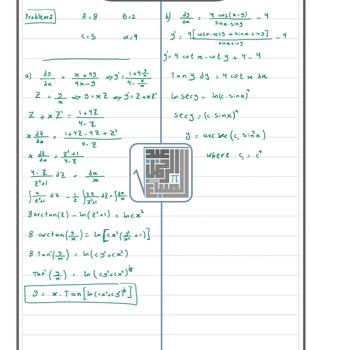 Problem 2 A = 8 B = 2
C = 5 α = 4
a) dy/dx = x+4y / 4x-y ⇒ y' = 1+4 y/x / 4 - y/x
Z = y/x ⇒ y = xZ ⇒ y' = Z + xZ'
Z + xZ' = 1+4Z / 4-Z
x dZ/dx = 1+4Z-4Z+Z² / 4-Z
x dZ/dx = Z²+1 / 4-Z
4-Z / Z²+1 dZ = dx/x
∫ 4/Z²+1 dZ - 1/2 ∫ 2Z/Z²+1 dZ = ∫ dx/x
8 arctan(Z) - ln(Z²+1) = ln cx²
8 arctan(y/x) = ln[cx²(y²/x²+1)]
8 Tan⁻¹(y/x) = ln(cy²+cx²)
Tan⁻¹(y/x) = ln(cy²+cx²)^1/8
y = x · Tan[ln(cx²+cy²)^1/8]
b) dy/dx = 4 cos(x-y) / sinx·siny - 4
y' = 4[cosx·cosy + sinx·siny] / sinx·siny - 4
y' = 4 cot x · cot y + 4 - 4
Tan y dy = 4 cot x dx
ln sec y = ln(c·sinx)⁴
sec y = (c·sinx)⁴
y = arc sec(c₁ sin⁴x)
where c₁ = c⁴
π